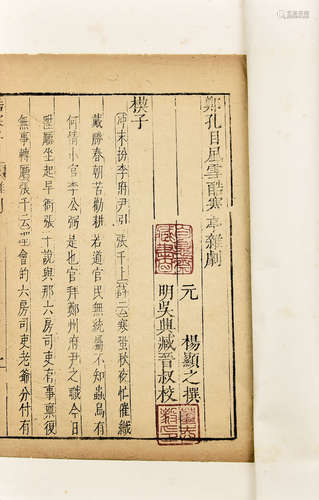 鄭孔目風雪酷寒亭雜劇
元 楊顯之撰
明吳興臧晉叔校
楔子
冲末扮李府尹引張千上詩云寒蛩秋夜忙催織
戴勝春朝苦勸耕若道官民無統屬不知蟲鳥有
何情小官李公弼是也官拜鄭州府尹之職今日
陞廳坐起早衙張千說與那六房司吏有事禀復
無事轉廳張千云理會的六房司吏老爺分付有